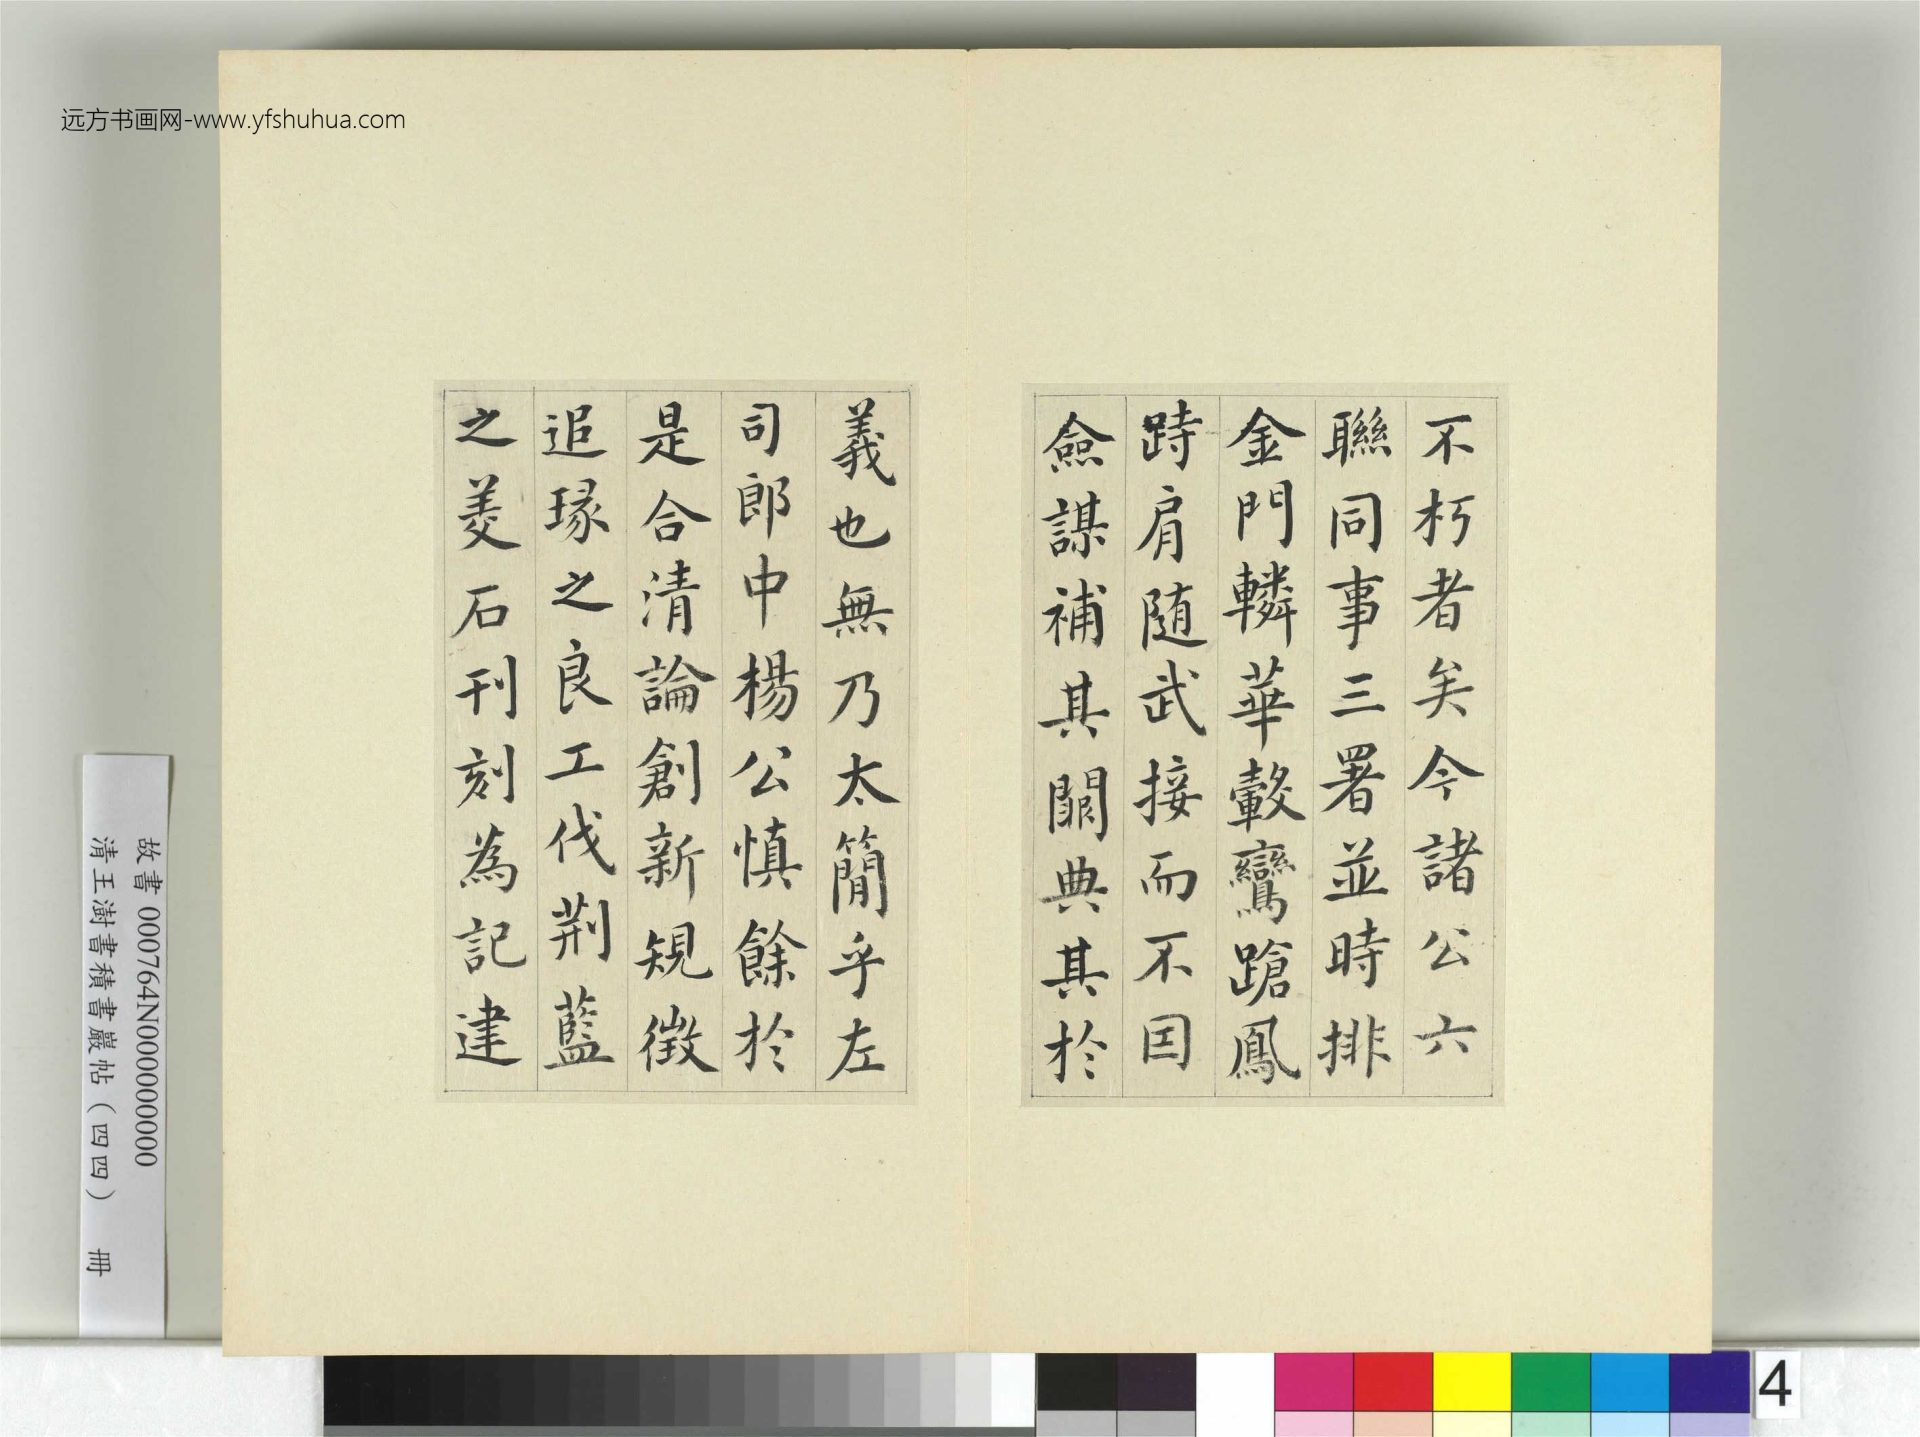 远方书画网-www.yfshuhua.com
不朽者矣今諸公六
聯同事三署並時排
金門轔華轂鸞蹌鳳
跱肩随武接而不囙
僉謀補其闕典其於
義也無乃太簡乎左
司郎中楊公慎餘於
是合清論創新規徴
追琢之良工伐荆藍
之美石刊刻為記建
故書 000764N000000000
清王澍書積書巖帖（四四） 冊
4